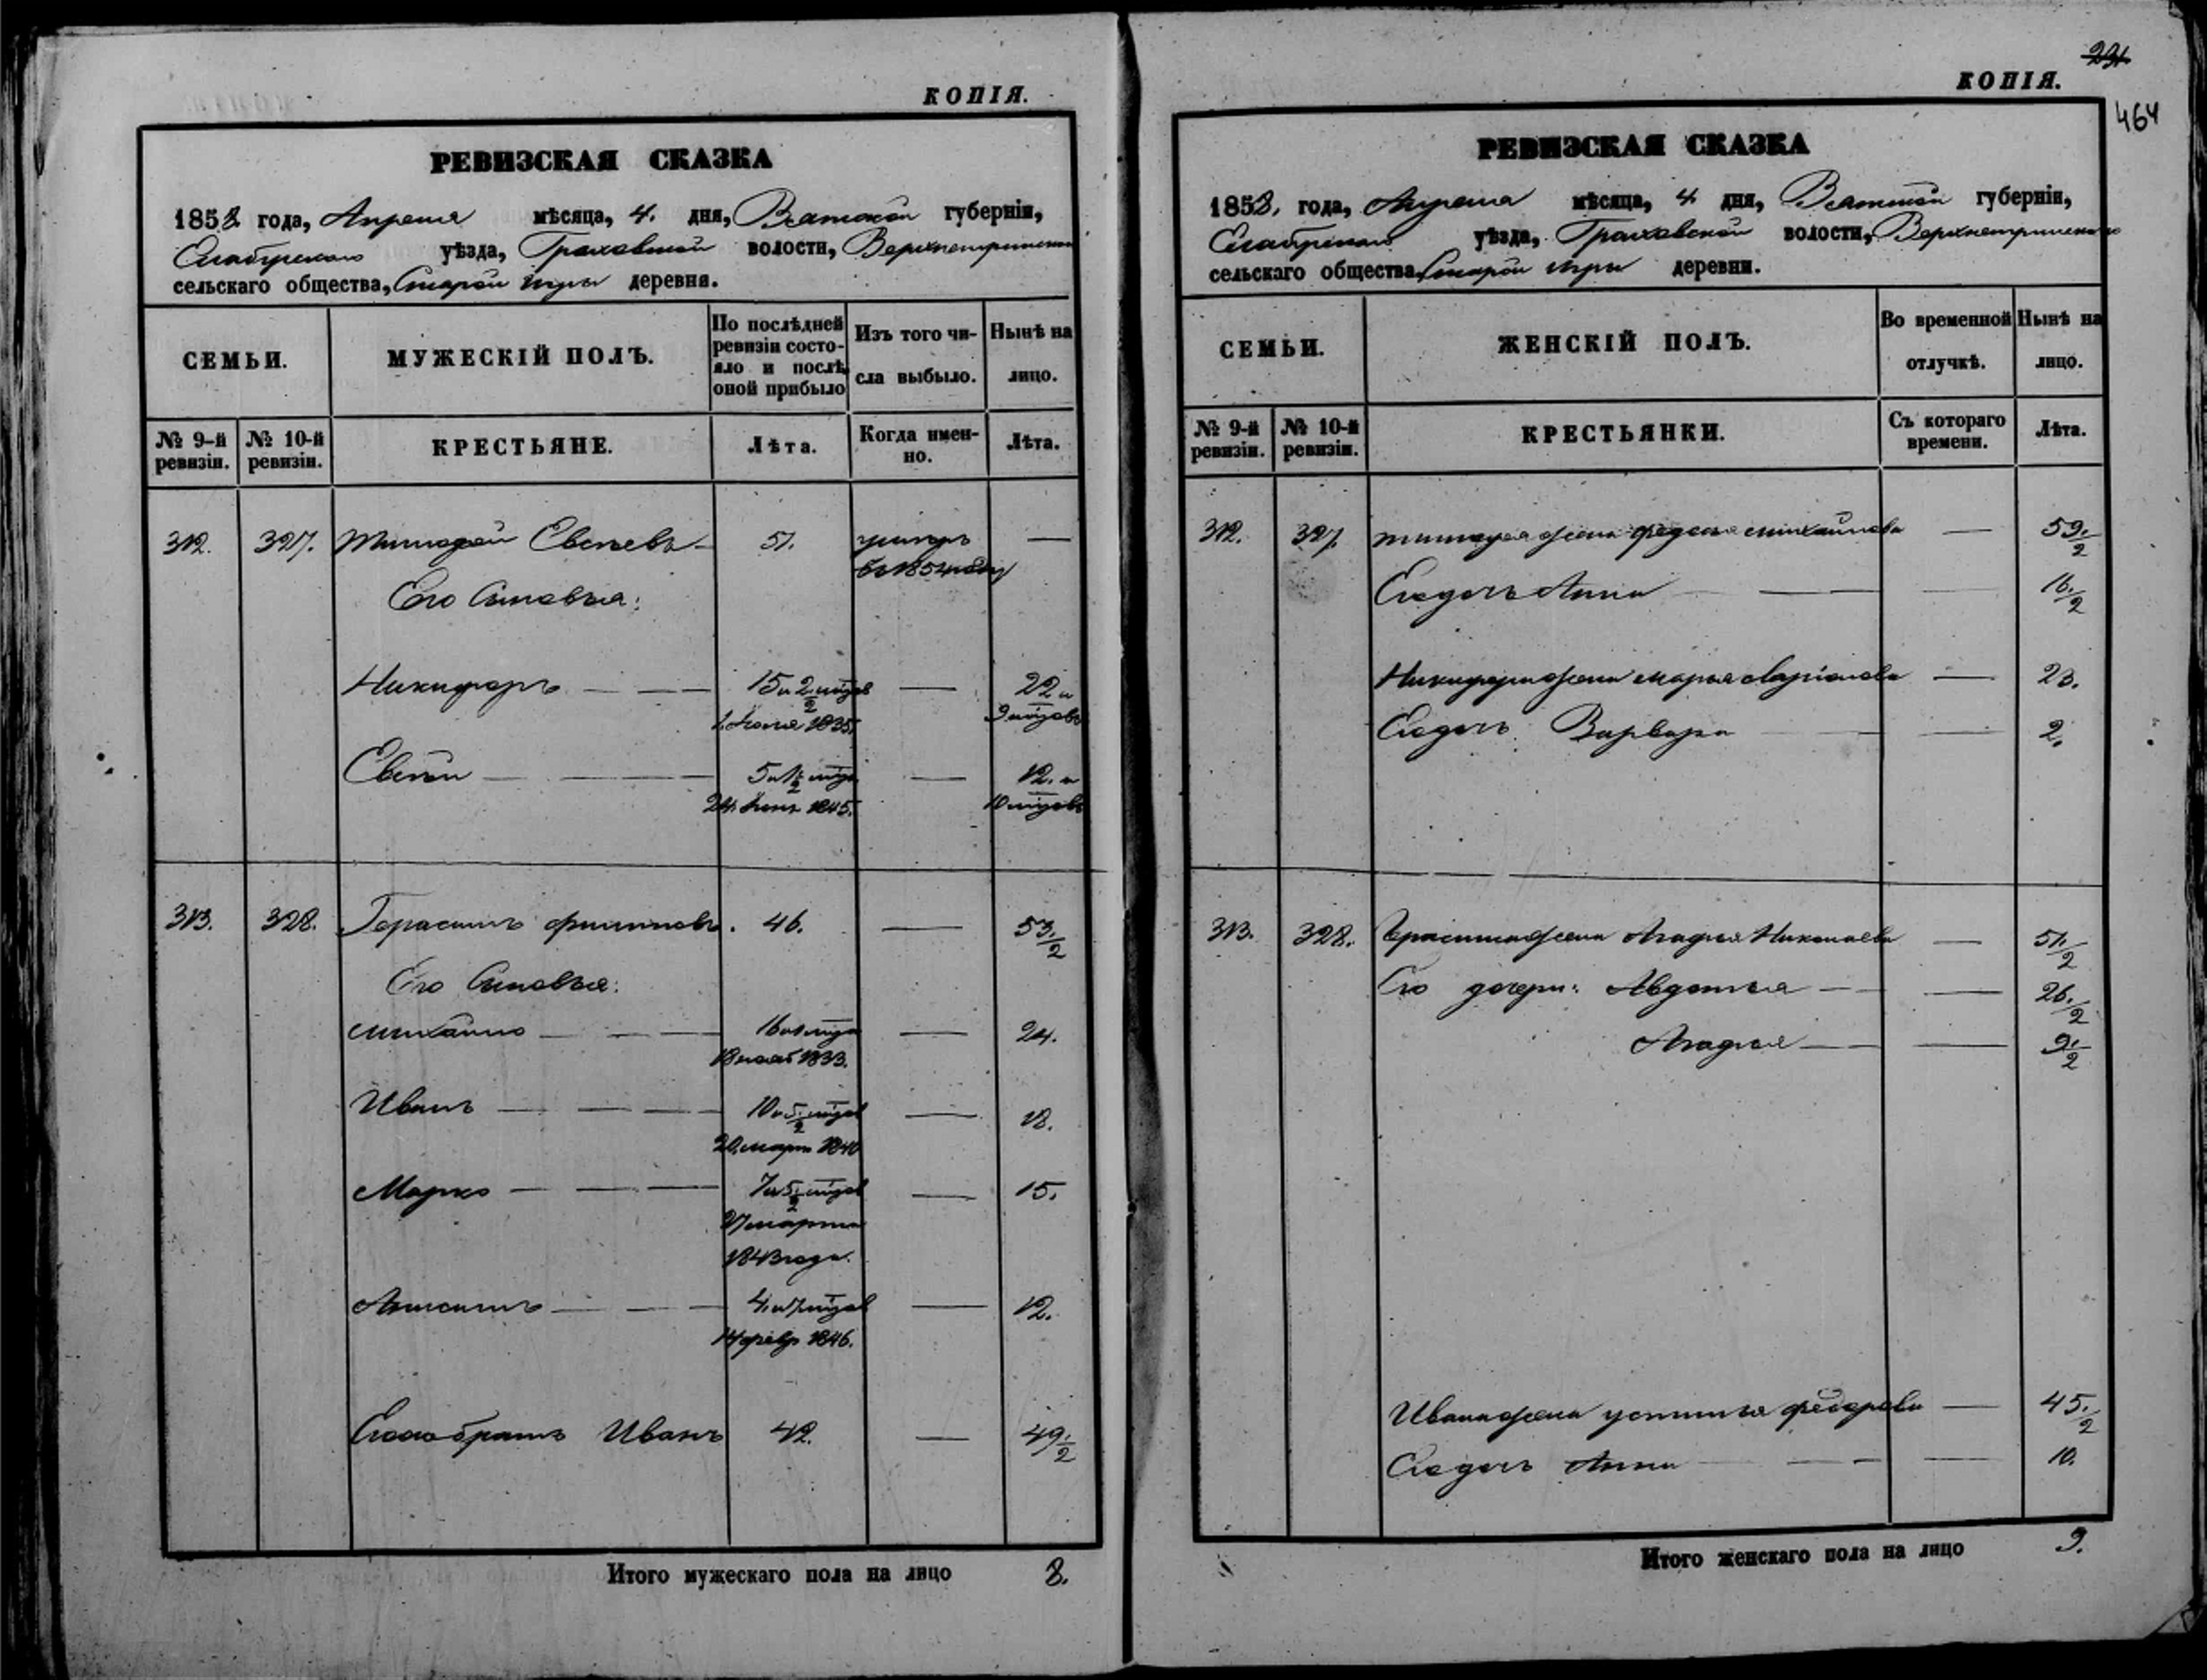 КОПІЯ.
РЕВИЗСКАЯ СКАЗКА
1858 года, Апреля мѣсяца, 4. дня, Вятской губерніи,
Елабужскаго уѣзда, Граховской волости,
сельскаго общества, Старой Игры деревня.
СЕМЬИ.
МУЖЕСКІЙ ПОЛЪ.
По послѣдней ревизіи состояло и послѣ оной прибыло
Изъ того числа выбыло.
Нынѣ на лицо.
№ 9-й ревизіи.
№ 10-й ревизіи.
КРЕСТЬЯНЕ.
Лѣта.
Когда имен-но.
Лѣта.
312. 327. Тимофей Евсѣевъ 51. умеръ —
въ 1854 году
Его Сыновья:
Никифоръ — — 15 и 2/2 — 22 и
1835. 9
Евсѣй — — 5 и — 12. и
24. 1845. 10
313. 328. Герасимъ Филиповъ. 46. — 53 1/2
Его Сыновья:
Михайло — — — 24.
1833.
Иванъ — — — 10 и 5/2 — 18.
20 марта 1840
Марко — — — 7 и 5/2 — 15.
27 марта
1843 года.
Анисимъ — — — 4. и — 12.
14 февр 1846.
братъ Иванъ 42. — 49 1/2
Итого мужескаго пола на лицо 8.
231.
КОПІЯ.
464
РЕВИЗСКАЯ СКАЗКА
1858. года, Апреля мѣсяца, 4 дня, Вятской губерніи,
Елабужскаго уѣзда, Граховской волости,
сельскаго общества, Старой Игры деревни.
СЕМЬИ.
ЖЕНСКІЙ ПОЛЪ.
Во временной отлучкѣ.
Нынѣ на лицо.
№ 9-й ревизіи.
№ 10-й ревизіи.
КРЕСТЬЯНКИ.
Съ котораго времени.
Лѣта.
312. 327. Тимофея жена Федосья Михайлова — 59 1/2
Его дочь Анна — — 16 1/2
Никифора жена Марья Ларіонова — 23.
Его дочь Варвара — — 2.
313. 328. Герасима жена Агафья Николаева — 51 1/2
Его дочери: Авдотья — — 26 1/2
Агафья — — 9 1/2
Ивана жена Устинья Федорова — 45 1/2
Его дочь Анна — — 10.
Итого женскаго пола на лицо 9.